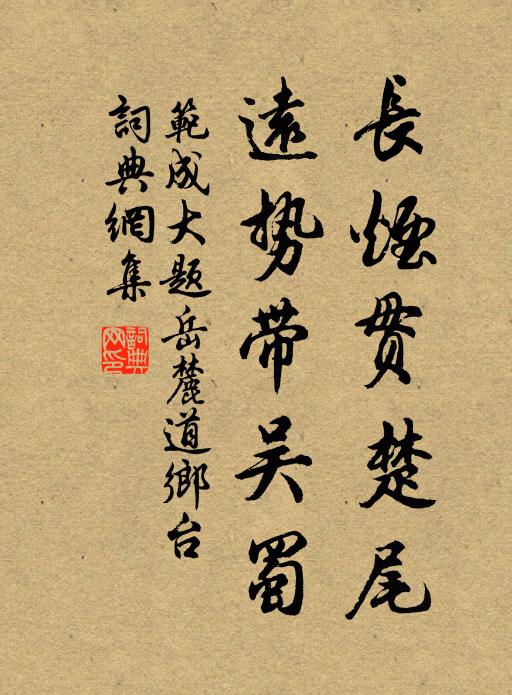 長煙貫楚尾
遠勢帶吴蜀
範成大题岳麓道鄉台
詞典網集
詞典网印